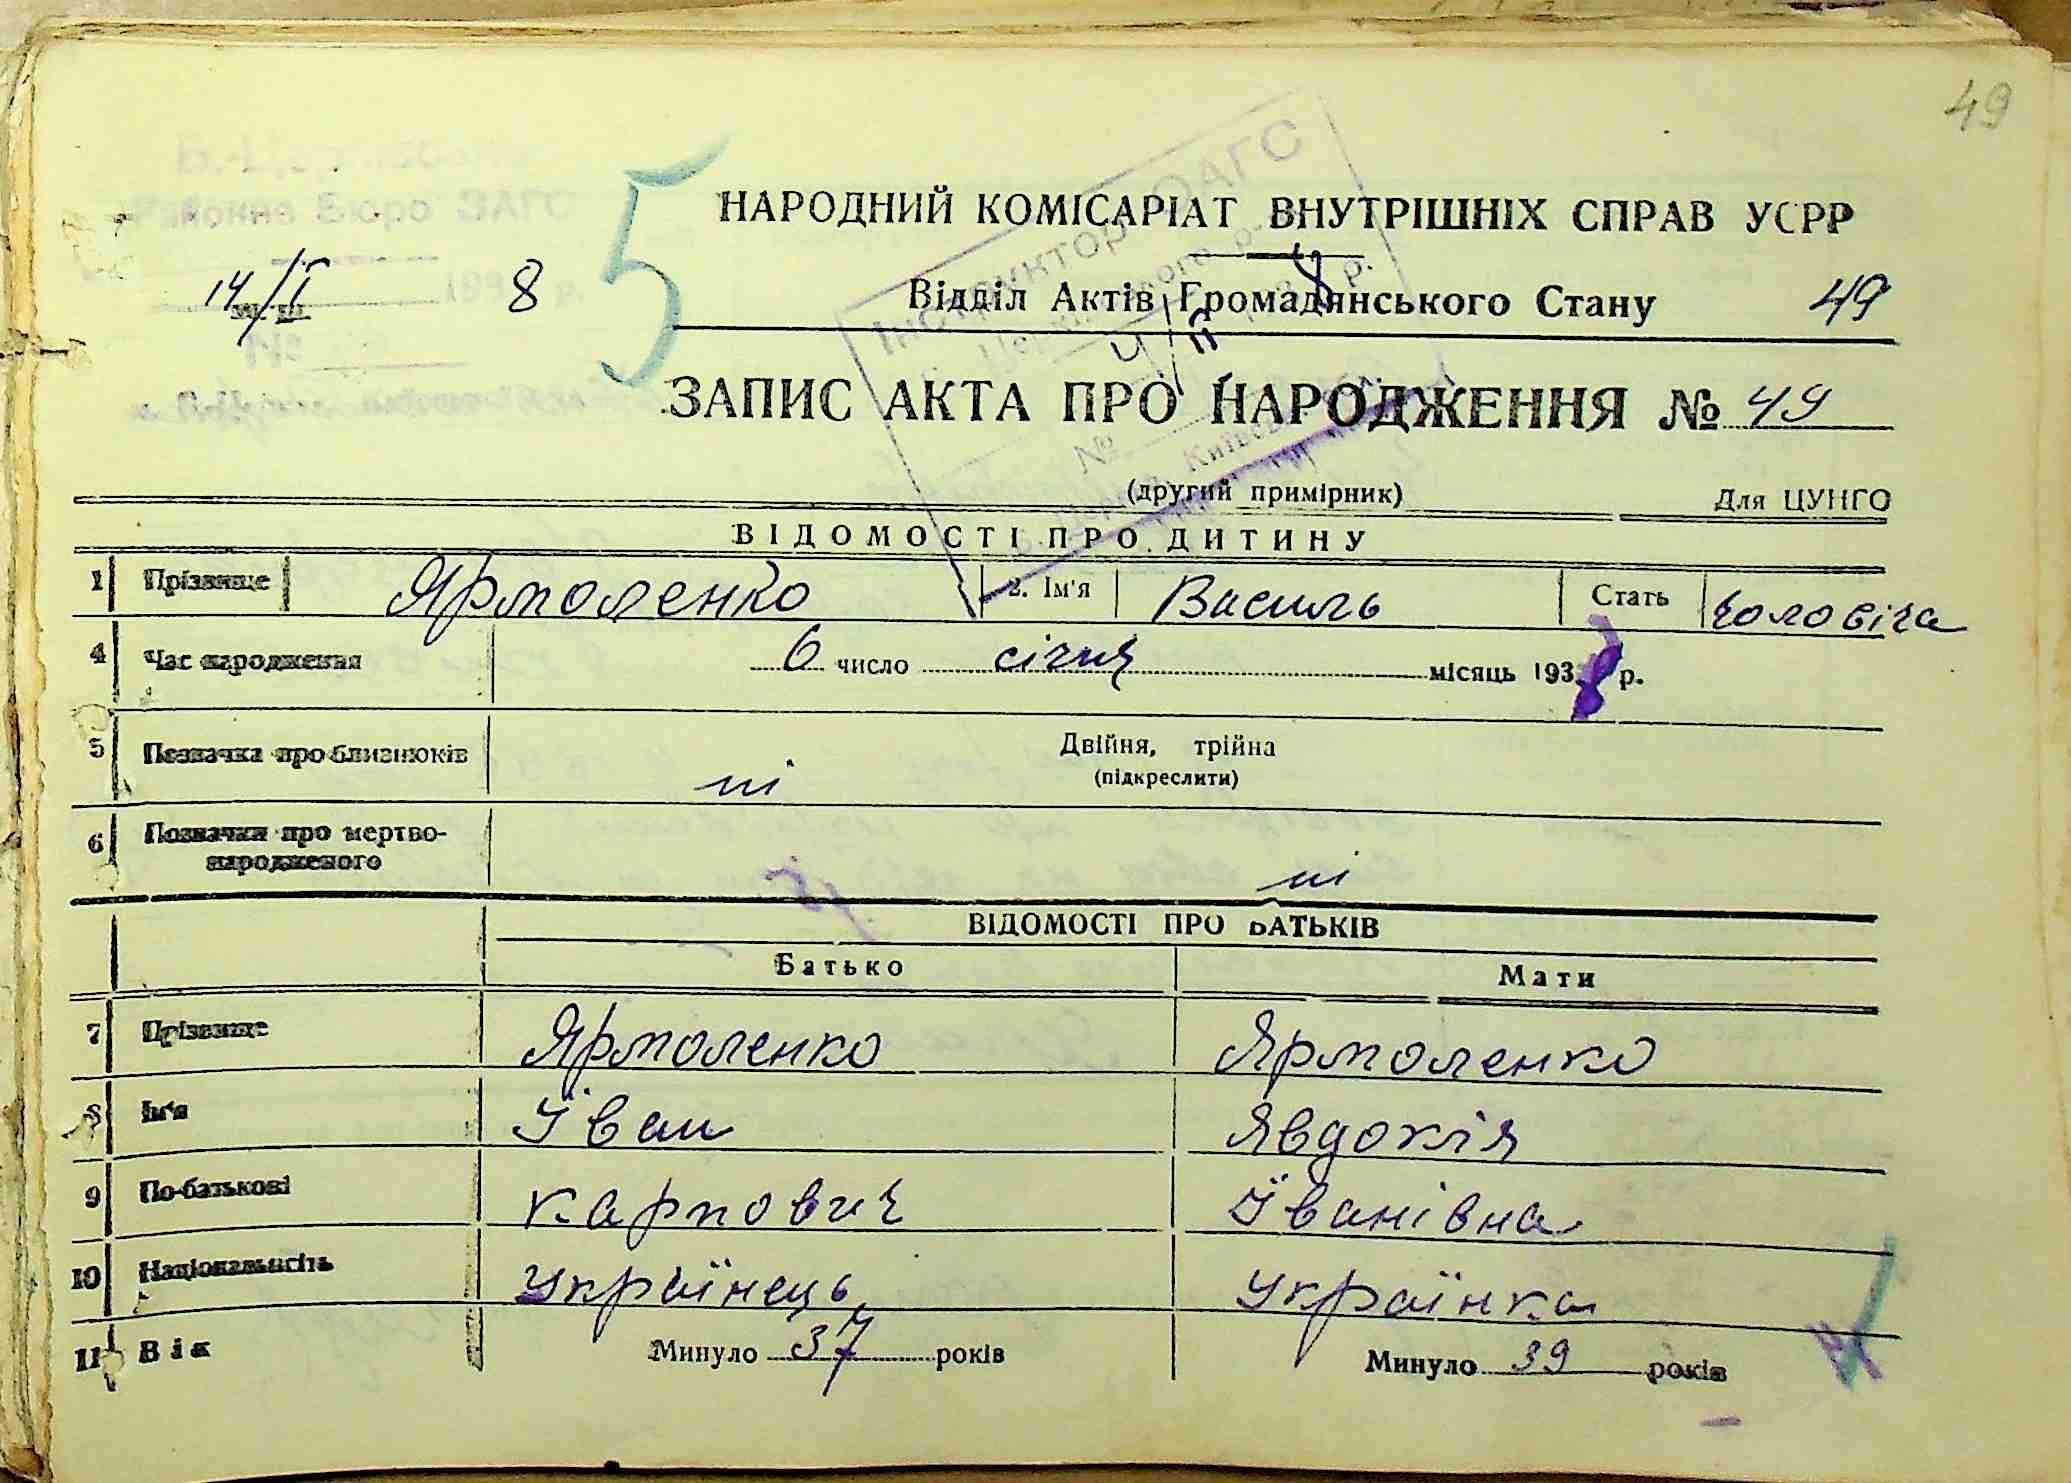 49
Районне Бюро ЗАГС
НАРОДНИЙ КОМІСАРІАТ ВНУТРІШНІХ СПРАВ УСРР
14/I 8 5 Відділ Актів Громадянського Стану 49
Інспектор ОАГС
ЗАПИС АКТА ПРО НАРОДЖЕННЯ № 49
(другий примірник) Для ЦУНГО
ВІДОМОСТІ ПРО ДИТИНУ
1 Прізвище Ярмоленко 2. Ім'я Василь Стать чоловіча
4 Час народження 6 число січня місяць 1938 р.
5 Позначка про близнюків ні Двійня, трійна
(підкреслити)
6 Позначки про мертво-
народженого ні
ВІДОМОСТІ ПРО БАТЬКІВ
Батько Мати
7 Прізвище Ярмоленко Ярмоленко
8 Ім'я Іван Явдокія
9 По-батькові Карпович Іванівна
10 Національність Українець Українка
11 Вік Минуло 37 років Минуло 39 років